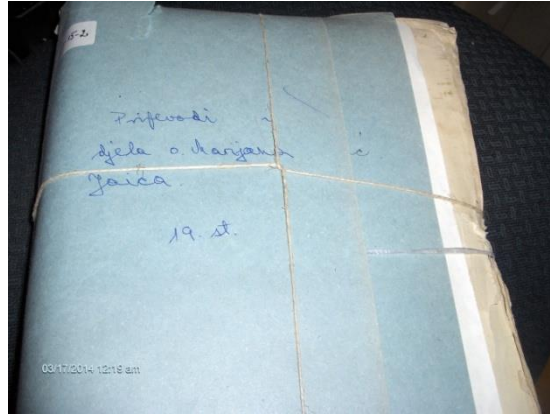 5-2
Prijevodi i
djela o. Marijana
Jaića.
19. st.
03/17/2014 12:19 am